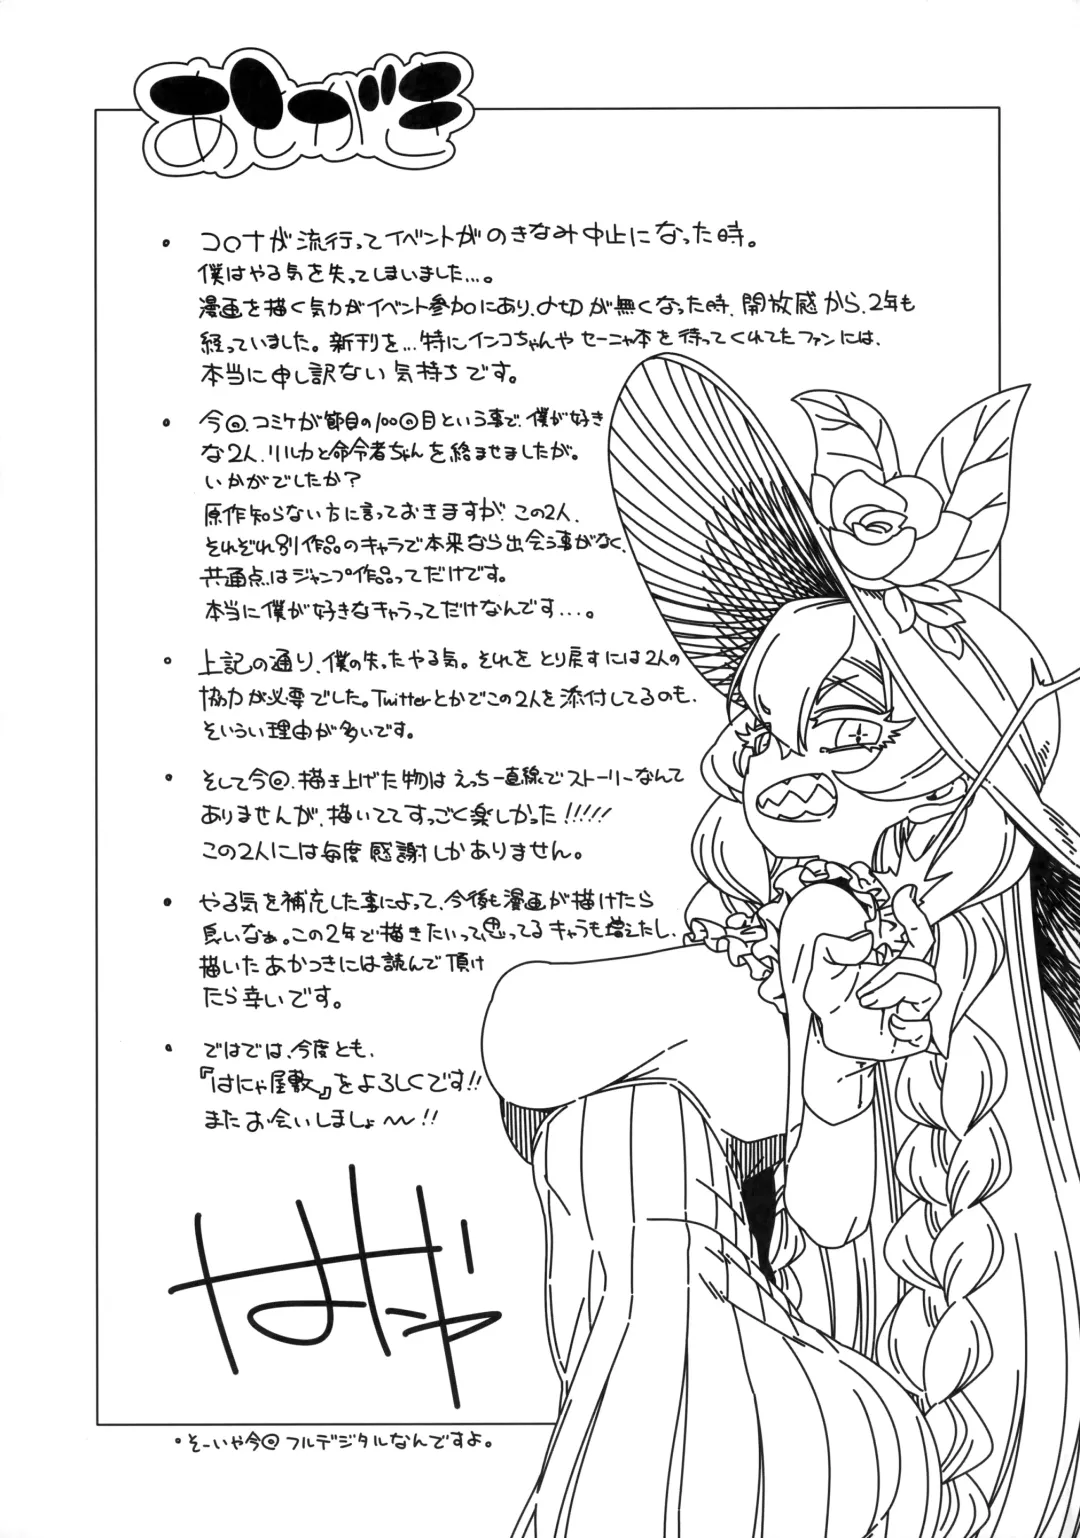 あとがき
・コロナが流行ってイベントがのきなみ中止になった時。
僕はやる気を失ってしまいました…。
漫画を描く気力がイベント参加にあり、〆切が無くなった時、開放感から、2年も
経っていました。新刊を…特にインコちゃんやセーニャ本を待ってくれてたファンには、
本当に申し訳ない気持ちです。
・今回、コミケが節目の100回目という事で、僕が好き
な2人、リルカと命令者ちゃんを絡ませましたが。
いかがでしたか?
原作知らない方に言っておきますが、この2人、
それぞれ別作品のキャラで本来なら出会う事がなく、
共通点はジャンプ作品ってだけです。
本当に僕が好きなキャラってだけなんです…。
・上記の通り、僕の失ったやる気。それをとり戻すには2人の
協力が必要でした。Twitterとかでこの2人を添付してるのも、
そういうい理由が多いです。
・そして今回、描き上げた物はえっち一直線でストーリーなんて
ありませんが、描いててすっごく楽しかった!!!!!
この2人には毎度感謝しかありません。
・やる気を補充した事によって、今後も漫画が描けたら
良いなぁ。この2年で描きたいって思ってるキャラも増えたし、
描いたあかつきには読んで頂け
たら幸いです。
・ではでは、今度とも、
『はにゃ屋敷』をよろしくです!!
またお会いしましょ〜!!
はにゃ
・そーいや今回フルデジタルなんですよ。